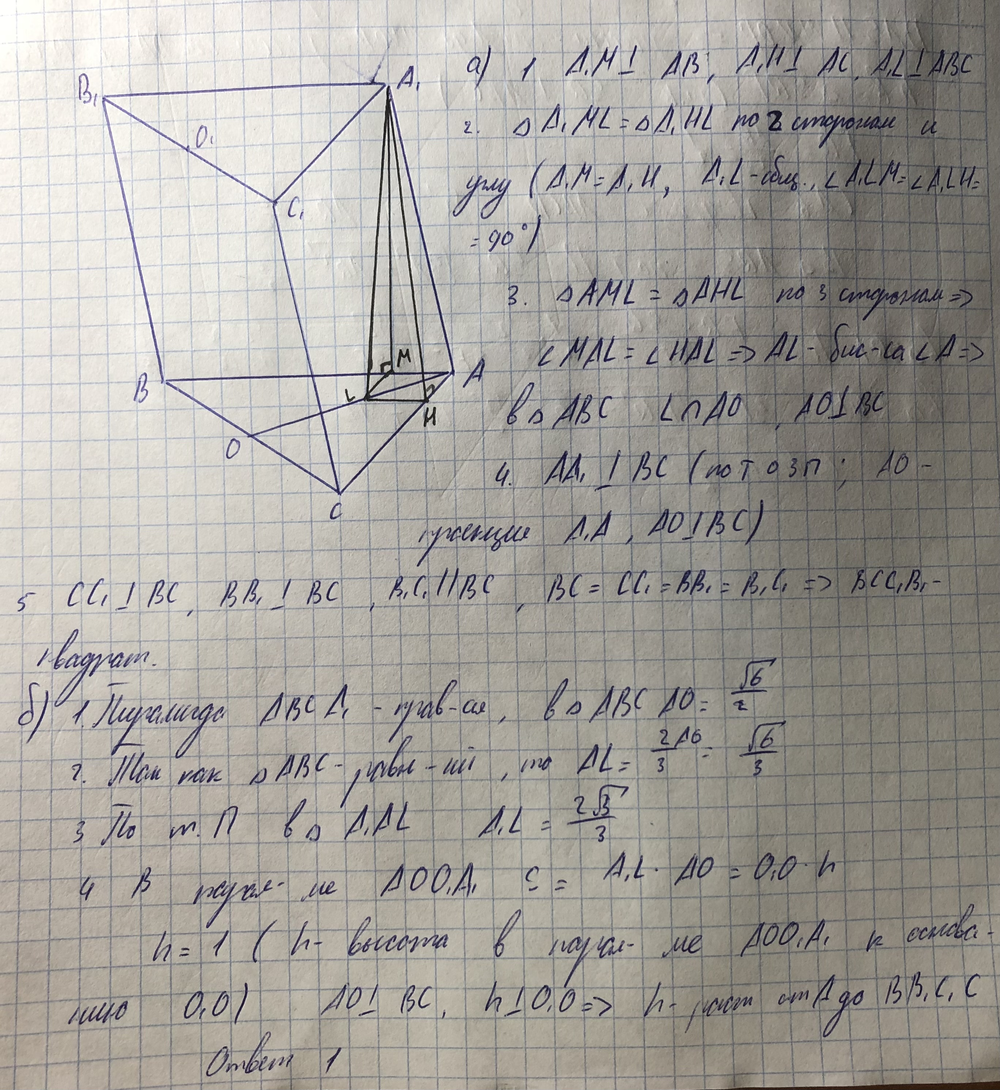 B₁
A₁
O₁
C₁
M
A
B
L
H
O
C
а) 1 A₁M⊥ AB; A₁H⊥ AC, A₁L⊥ABC
2. △A₁ML=△A₁HL по 2 сторонам и
углу (A₁M=A₁H, A₁L-общ., ∠A₁LM=∠A₁LH=
=90°)
3. △AML = △AHL по 3 сторонам =>
∠MAL=∠HAL => AL- бис-са ∠A =>
в △ ABC L∩AO , AO⊥BC
4. AA₁⊥BC (по т о 3 п ; AO-
проекция A₁A , AO⊥BC)
5 CC₁⊥BC, BB₁⊥BC , B₁C₁||BC , BC = CC₁=BB₁= B₁C₁ => BCC₁B₁-
квадрат.
б) 1. Пирамида ABCA₁ - прав-ая, в △ABC AO= √6/2
2. Так как △ABC- равн-ий, то AL= 2AO/3 = √6/3
3 По т. П в △ A₁AL A₁L = 2√3/3
4 В парал-ме AOO₁A₁ S = A₁L · AO = O₁O · h
h=1 ( h- высота в парал-ме AOO₁A₁ к основа-
нию O₁O) AO⊥BC, h⊥O₁O => h- раст от A до BB₁C₁C
Ответ 1